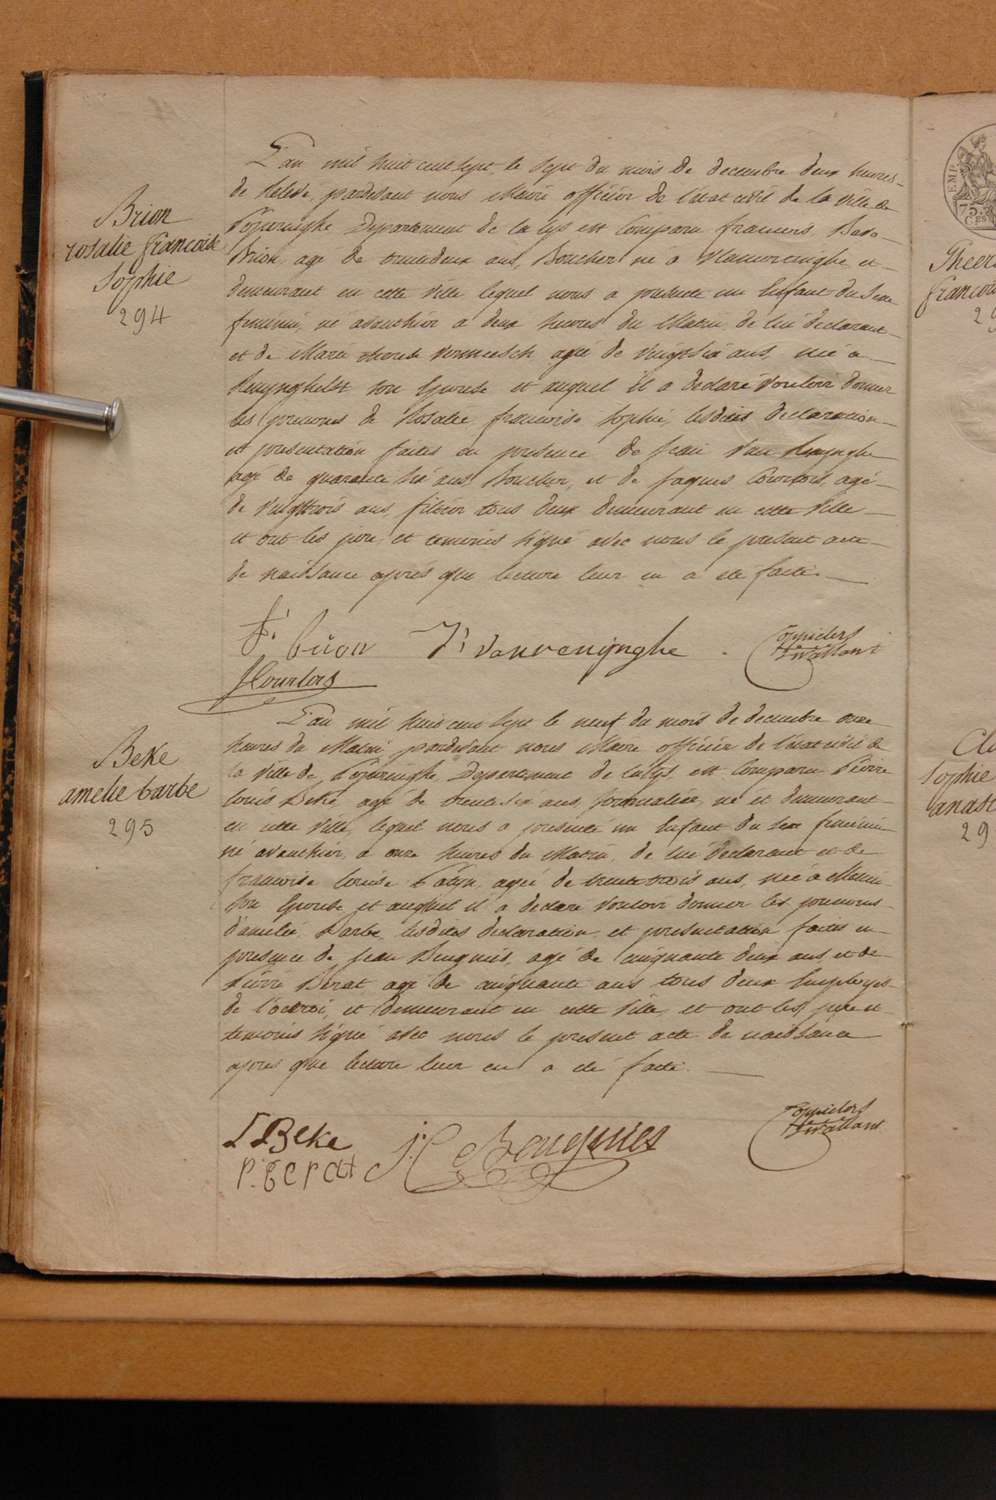 Brion
rosalie francoise
Sophie
294
L'an mil huit cent sept, le sept du mois de decembre deux heures
de relevée, pardevant nous Maire officier de l'etat civil de la ville de
Poperinghe Departement de la lys est comparu francois
Brion agé de trente deux ans, Boucher né a Vlamertinghe et
demeurant en cette ville lequel nous a presenté un Enfant du Sexe
feminin, né avanthier a deux heures du Matin, de lui declarant
et de Marie therese Vermeesch agée de vingt six ans, née a
Reninghelst son Epouse et auquel il a declaré vouloir donner
les prenoms de Rosalie francoise Sophie, lesdites declaration
et presentation faites en presence de Jean Van Renynghe
agé de quarante six ans Boucher, et de Jaques Courtois agé
de vingt trois ans, filtier tous deux demeurant en cette ville
et ont les pere et temoins signé avec nous le present acte
de naissance apres que lecture leur en a eté faite.
F: brion J: vanrenijnghe
J Courtois
Beke
amelie barbe
295
L'an mil huit cent sept le neuf du mois de decembre onze
heures du Matin pardevant nous Maire officier de l'etat civil de
la ville de Poperinghe Departement de la lys est comparu Pierre
Louis Beke agé de trente six ans, journalier, né et demeurant
en cette ville, lequel nous a presenté un Enfant du Sexe feminin
né avanthier a onze heures du Matin, de lui declarant et de
francoise Louise agée de trente trois ans, née a Menin
son Epouse et auquel il a declaré vouloir donner les prenoms
d'amelie Barbe, lesdites declaration et presentation faites en
presence de Jean Beugnies agé de cinquante deux ans et de
Pierre Berat agé de cinquante ans tous deux Employés
de l'octroi, et demeurant en cette ville et ont les pere et
temoins signé avec nous le present acte de naissance
apres que lecture leur en a eté faite.
L Beke
P. berat
Beugnies
francois
29
Sophie
anast
29